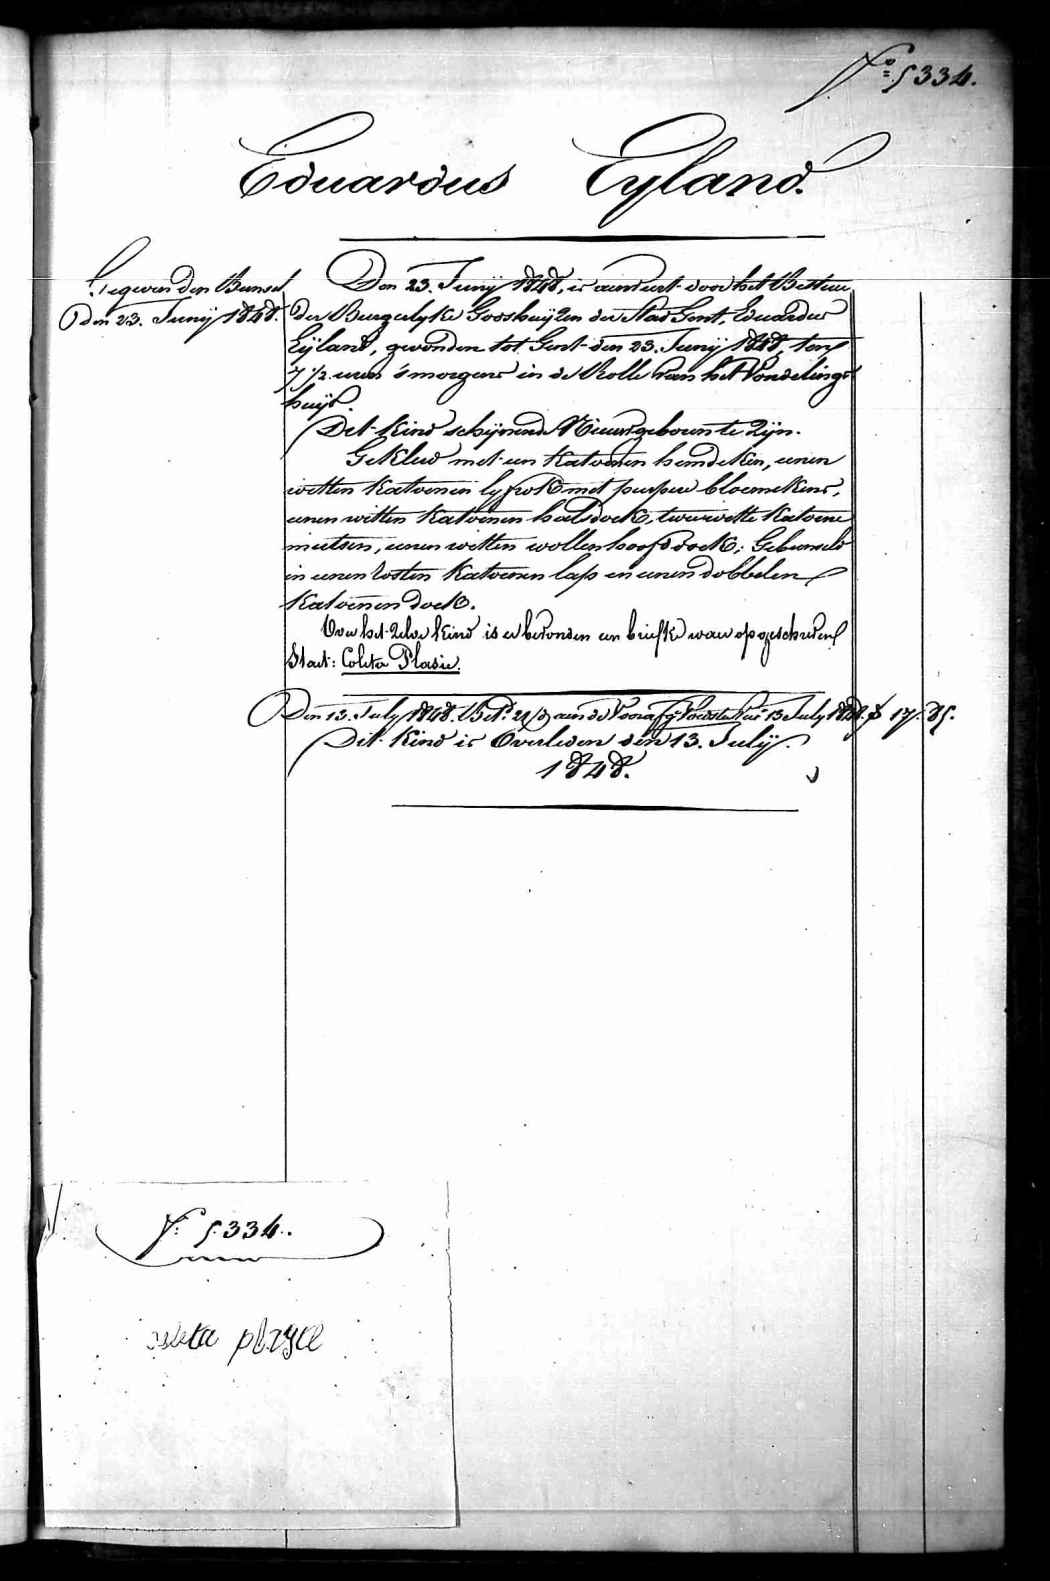 N.º 5334.
Eduardus Eyland.
Gegeven den Bunsel
Den 23. Junij 1848.
Den 23. Junij 1848, is aenveert door het Bestuur
der Burgerlyke Godshuijzen der Stad Gent, Eduardus
Eijland, gevonden tot Gent den 23. Junij 1848, ten
7 1/2 uren 's morgens in de Rolle van het Vondelings
huijs.
Dit kind schijnende Nieuwgeboren te Zijn.
Gekleed met een Katoenen hemdeken, eenen
witten Katoenen lyfrok met purpere bloemekens,
eenen witten Katoenen halsdoek, twee witte Katoene
mutsen, eenen witten wollen hoofddoek; Gebunseld
in eenen rosten Katoenen lap en eenen dobbelen
Katoenen doek.
Over het zelve kind is er bevonden een briefke waer op geschreven
Staet: Coleta Plasie.
Den 13. July 1848. Bet.d 21/d aen de Voorafg.e 13 July 1848. f 17. 85.
Dit Kind is Overleden den 13. Julij
1848.
N.º 5334.
coleta plasye